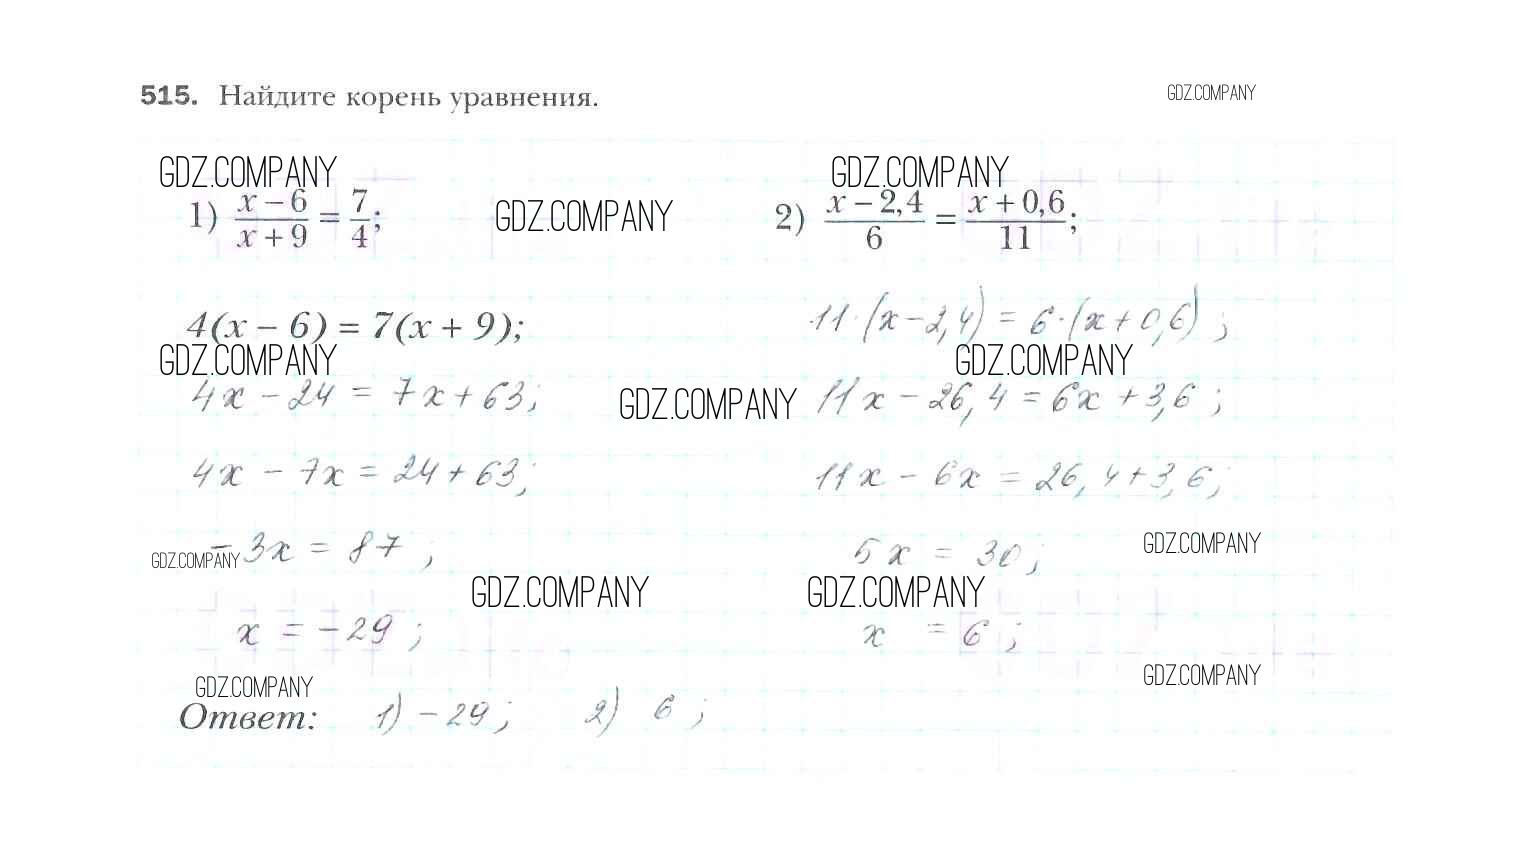 515. Найдите корень уравнения. GDZ.COMPANY
GDZ.COMPANY GDZ.COMPANY
1) (x − 6)/(x + 9) = 7/4; GDZ.COMPANY 2) (x − 2,4)/6 = (x + 0,6)/11;
4(x − 6) = 7(x + 9); 11·(x − 2,4) = 6·(x + 0,6);
GDZ.COMPANY GDZ.COMPANY
4x − 24 = 7x + 63; GDZ.COMPANY 11x − 26,4 = 6x + 3,6;
4x − 7x = 24 + 63; 11x − 6x = 26,4 + 3,6;
GDZ.COMPANY − 3x = 87; 5x = 30; GDZ.COMPANY
GDZ.COMPANY GDZ.COMPANY
x = −29; x = 6;
GDZ.COMPANY GDZ.COMPANY
Ответ: 1) −29; 2) 6;